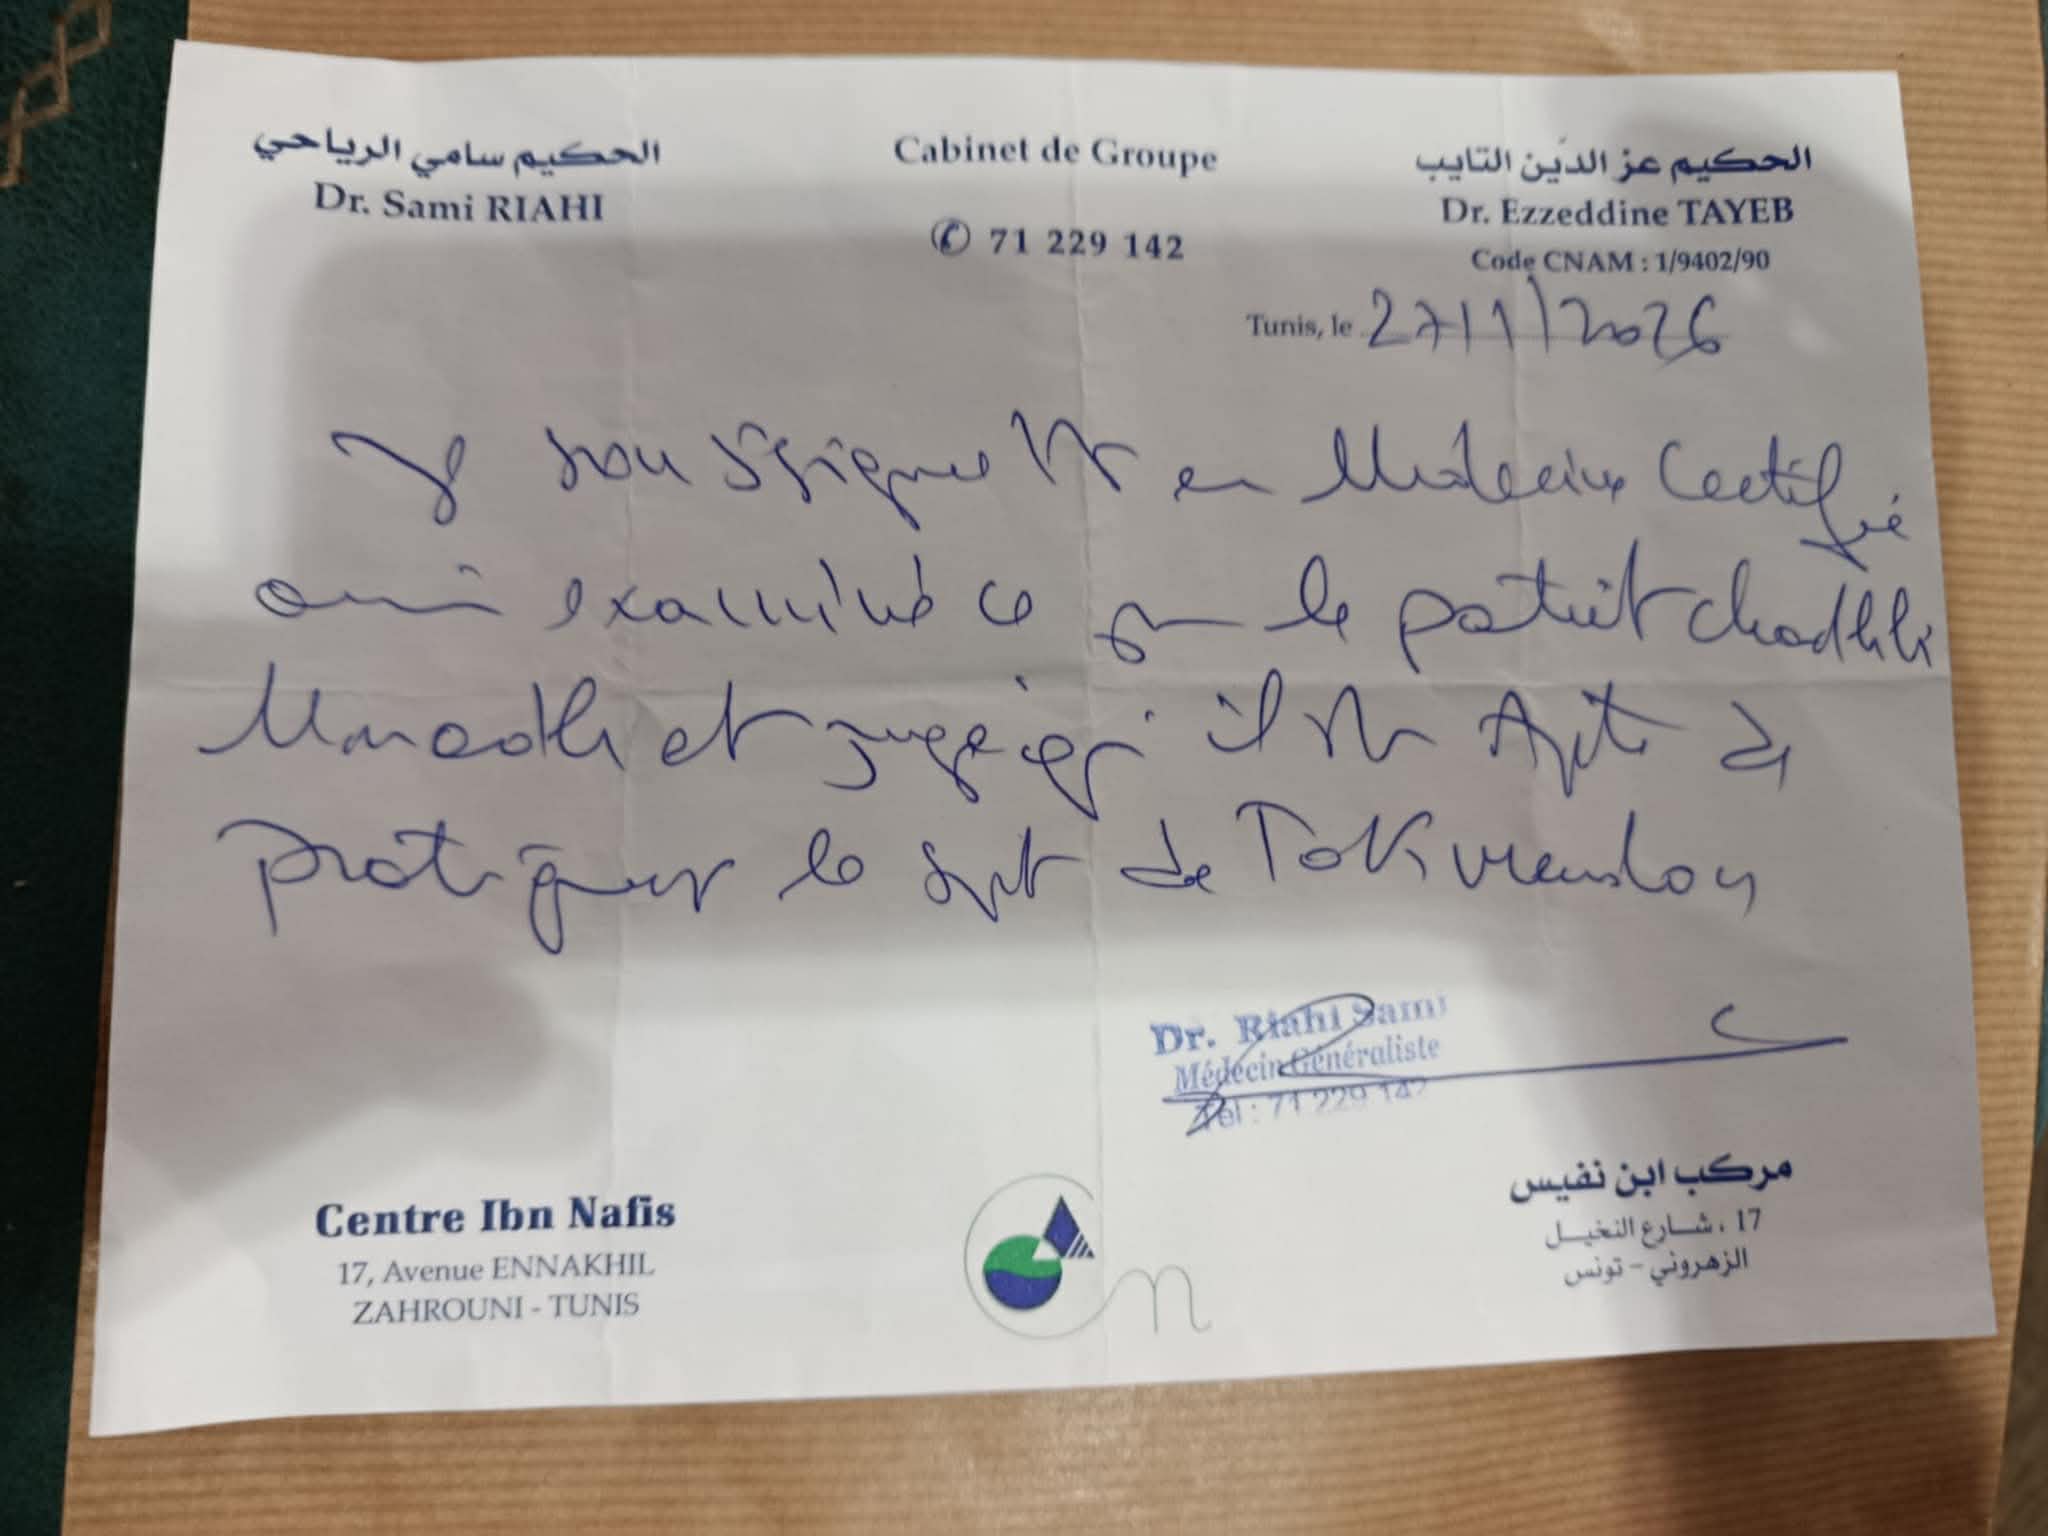 الحكيم سامي الرياحي
Dr. Sami RIAHI
Cabinet de Groupe
✆ 71 229 142
الحكيم عز الدّين التايب
Dr. Ezzeddine TAYEB
Code CNAM : 1/9402/90
Tunis, le 27/1/2026
sou Ssigné Dr en Médecine Certifié
examiné ce jour le patient Chadhli
Mouadh et jugé qu'il est Apte à
pratiquer le sport de
Dr. Riahi Sami
Médecin Généraliste
Tél : 71 229 142
Centre Ibn Nafis
17, Avenue ENNAKHIL
ZAHROUNI - TUNIS
مركب ابن نفيس
17 ، شارع النخيل
الزهروني - تونس